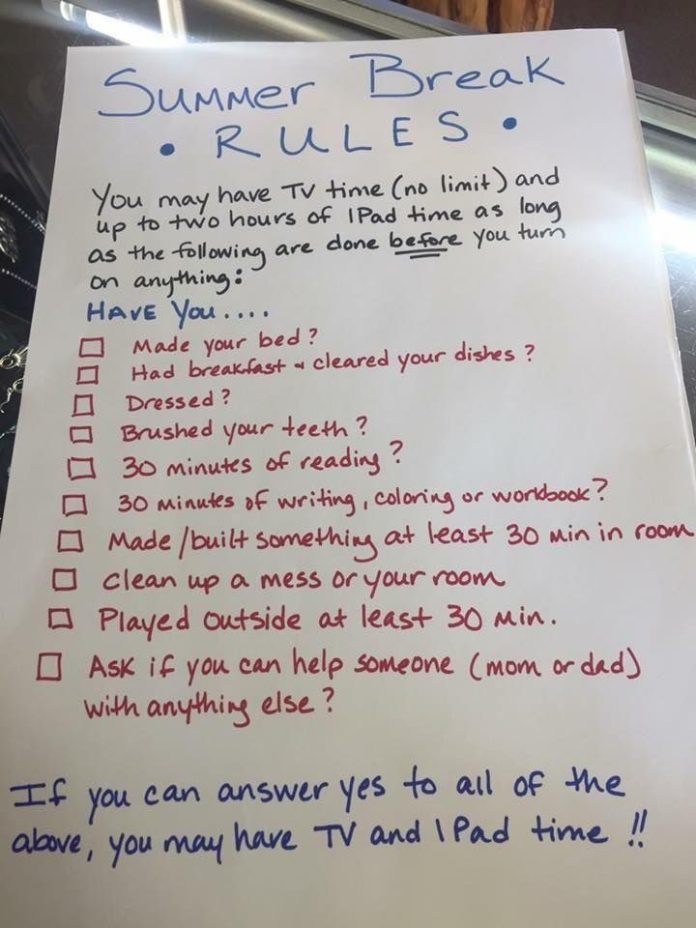 Summer Break
• RULES •
You may have TV time (no limit) and
up to two hours of IPad time as long
as the following are done before you turn
on anything:
HAVE YOU....
Made your bed?
Had breakfast & cleared your dishes?
Dressed?
Brushed your teeth?
30 minutes of reading?
30 minutes of writing, coloring or workbook?
Made/built something at least 30 min in room
Clean up a mess or your room
Played outside at least 30 min.
Ask if you can help someone (mom or dad)
with anything else?
If you can answer yes to all of the
above, you may have TV and IPad time!!